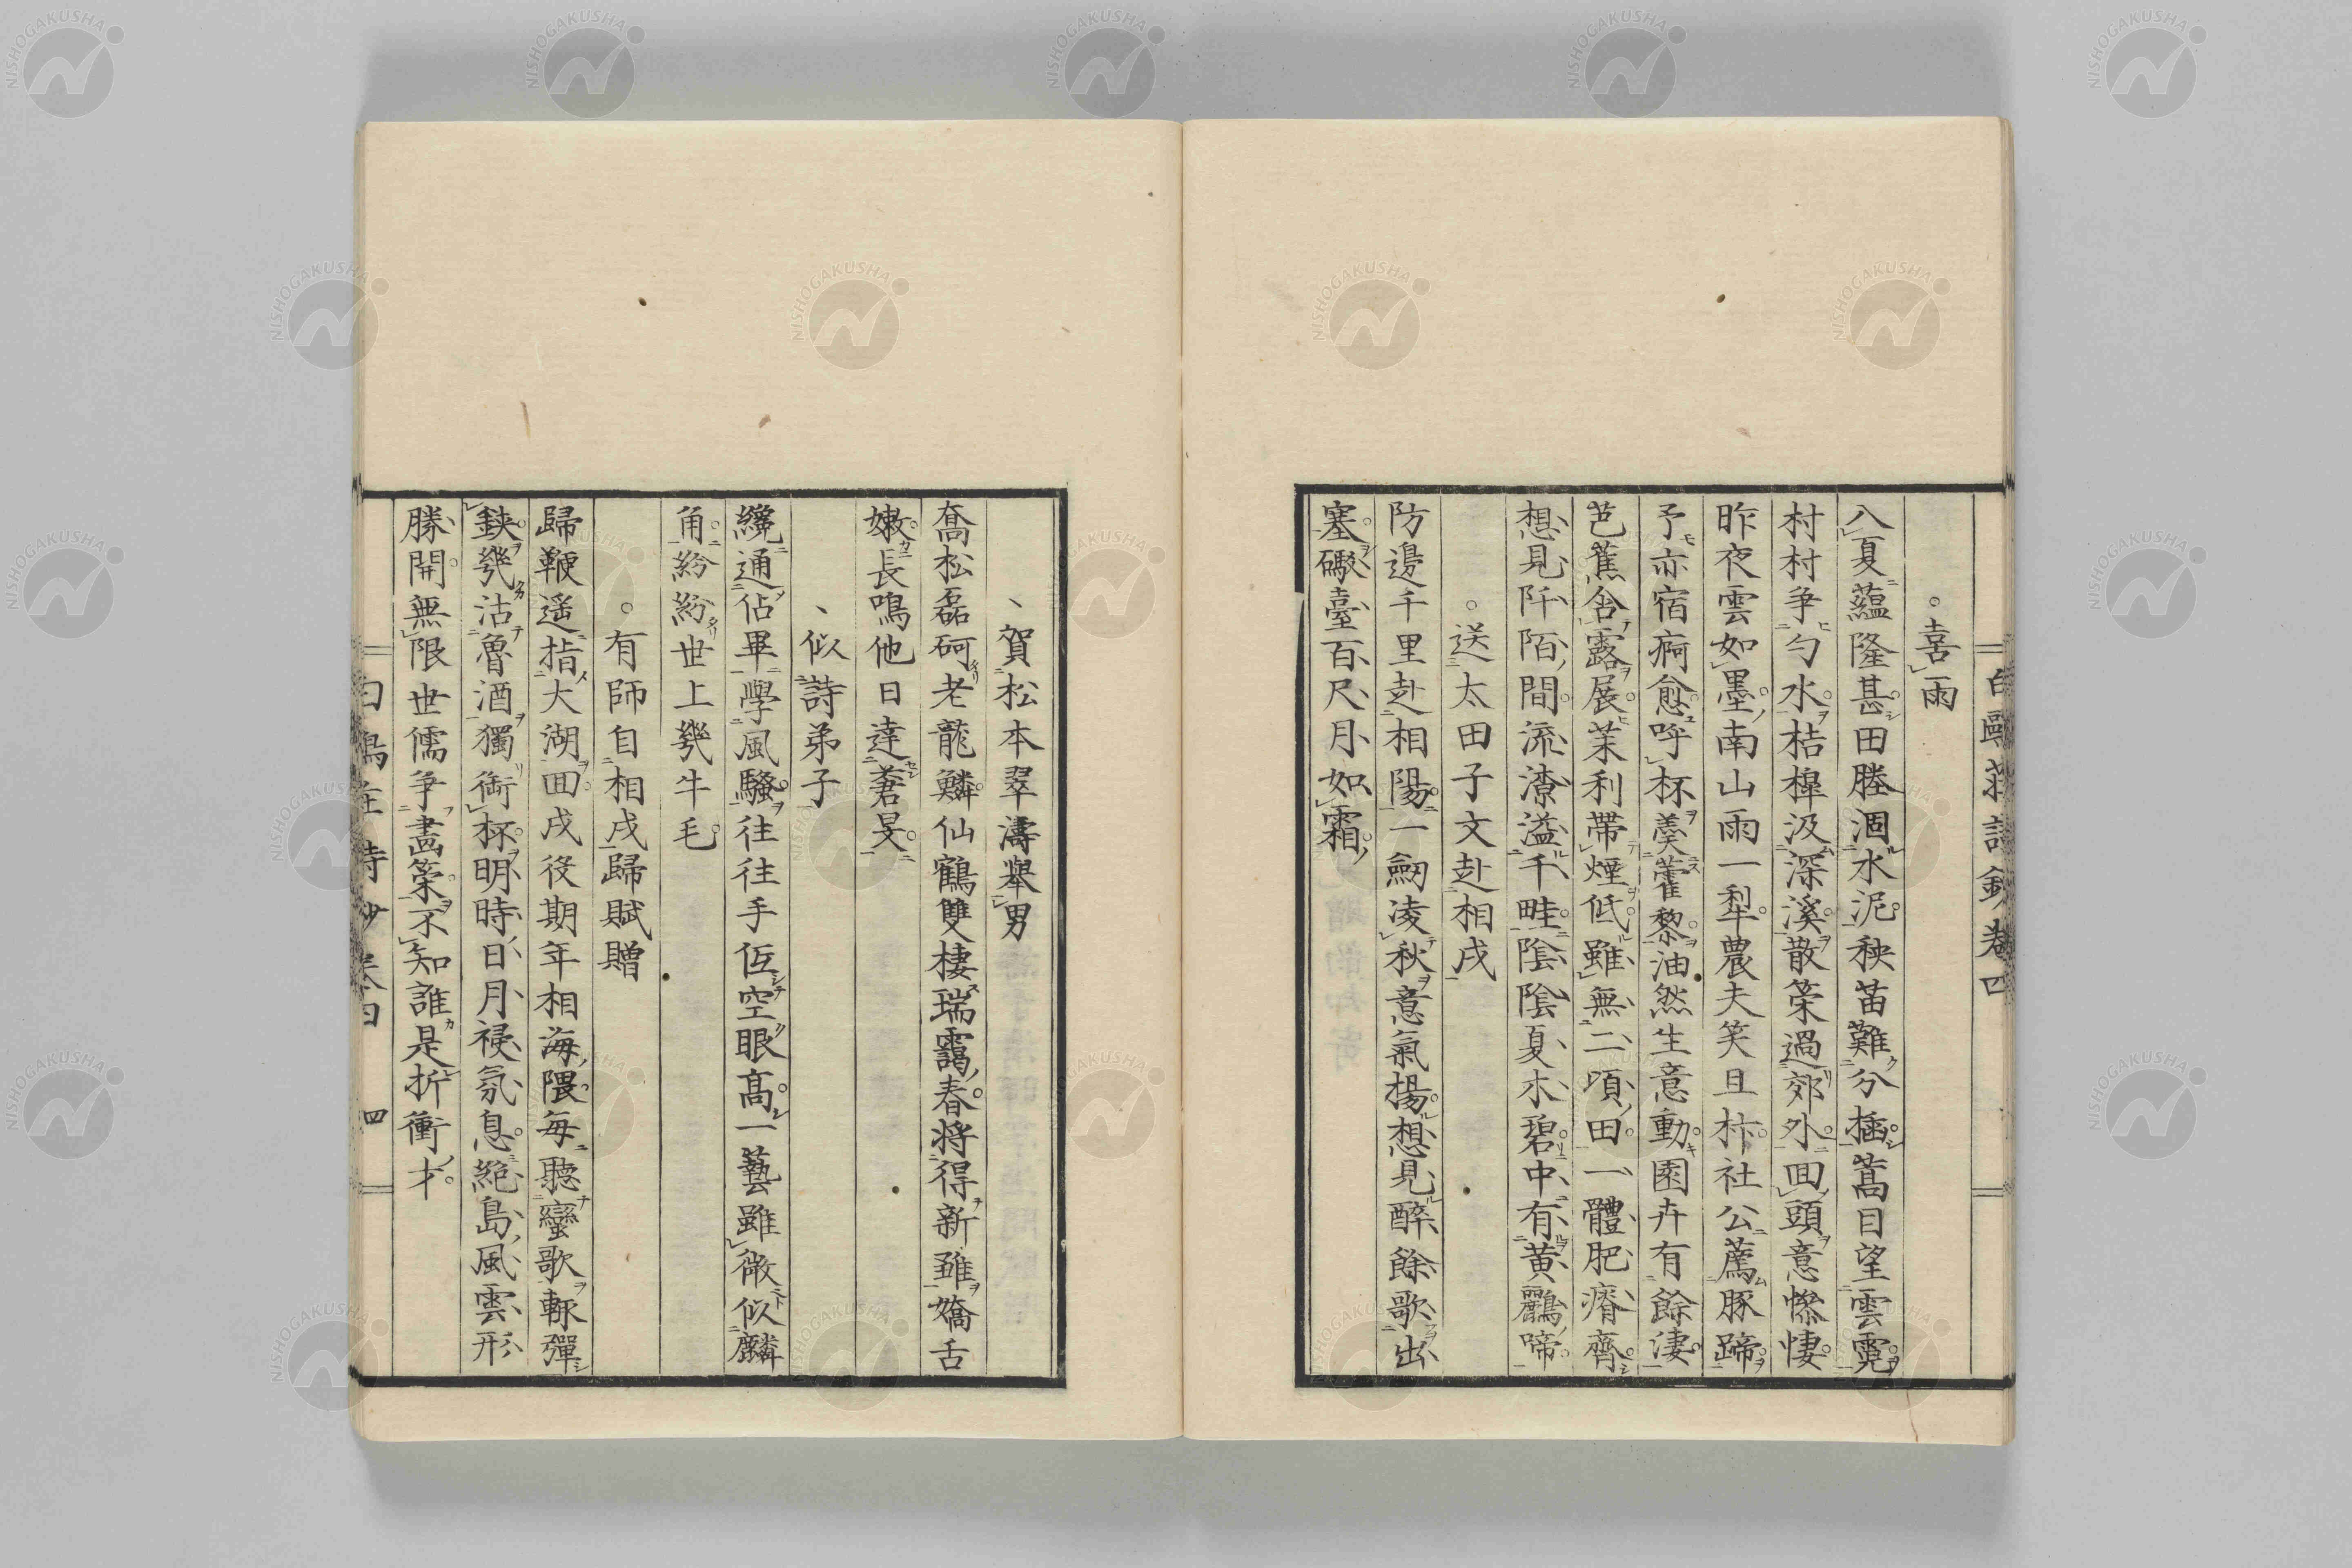 喜雨
八夏蘊隆甚田塍涸水泥秧苗難分插蒿目望雲霓
村村爭勺水桔槹汲深溪散策過郊外囬頭意慘悽
昨夜雲如墨南山雨一犁農夫笑且抃社公薦豚蹄
予亦宿痾愈呼杯羹藿黎油然生意動園卉有餘淒
芭蕉舍露展茉利帶煙低雖無二頃田一體肥瘠齊
想見阡陌間流潦溢千畦陰陰夏木碧中有黄鸝啼
送太田子文赴相戍
防邊千里赴相陽一劒凌秋意氣揚想見醉餘歌出
塞礟臺百尺月如霜
賀松本翠濤舉男
喬松磊砢老龍鱗仙鶴雙棲瑞靄春將得新雖嬌舌
嫩長鳴他日達蒼旻
似詩弟子
纔通佔畢學風騷往往手伍空眼高一藝雖微似麟
角紛紛世上幾牛毛
有師自相戍歸賦贈
歸鞭遥指大湖囬戍役期年相海隈每聽蠻歌輙彈
鋏幾沽魯酒獨銜杯明時日月祲氛息絶島風雲形
勝開無限世儒爭畫策不知誰是折衝才
四
NISHOGAKUSHA